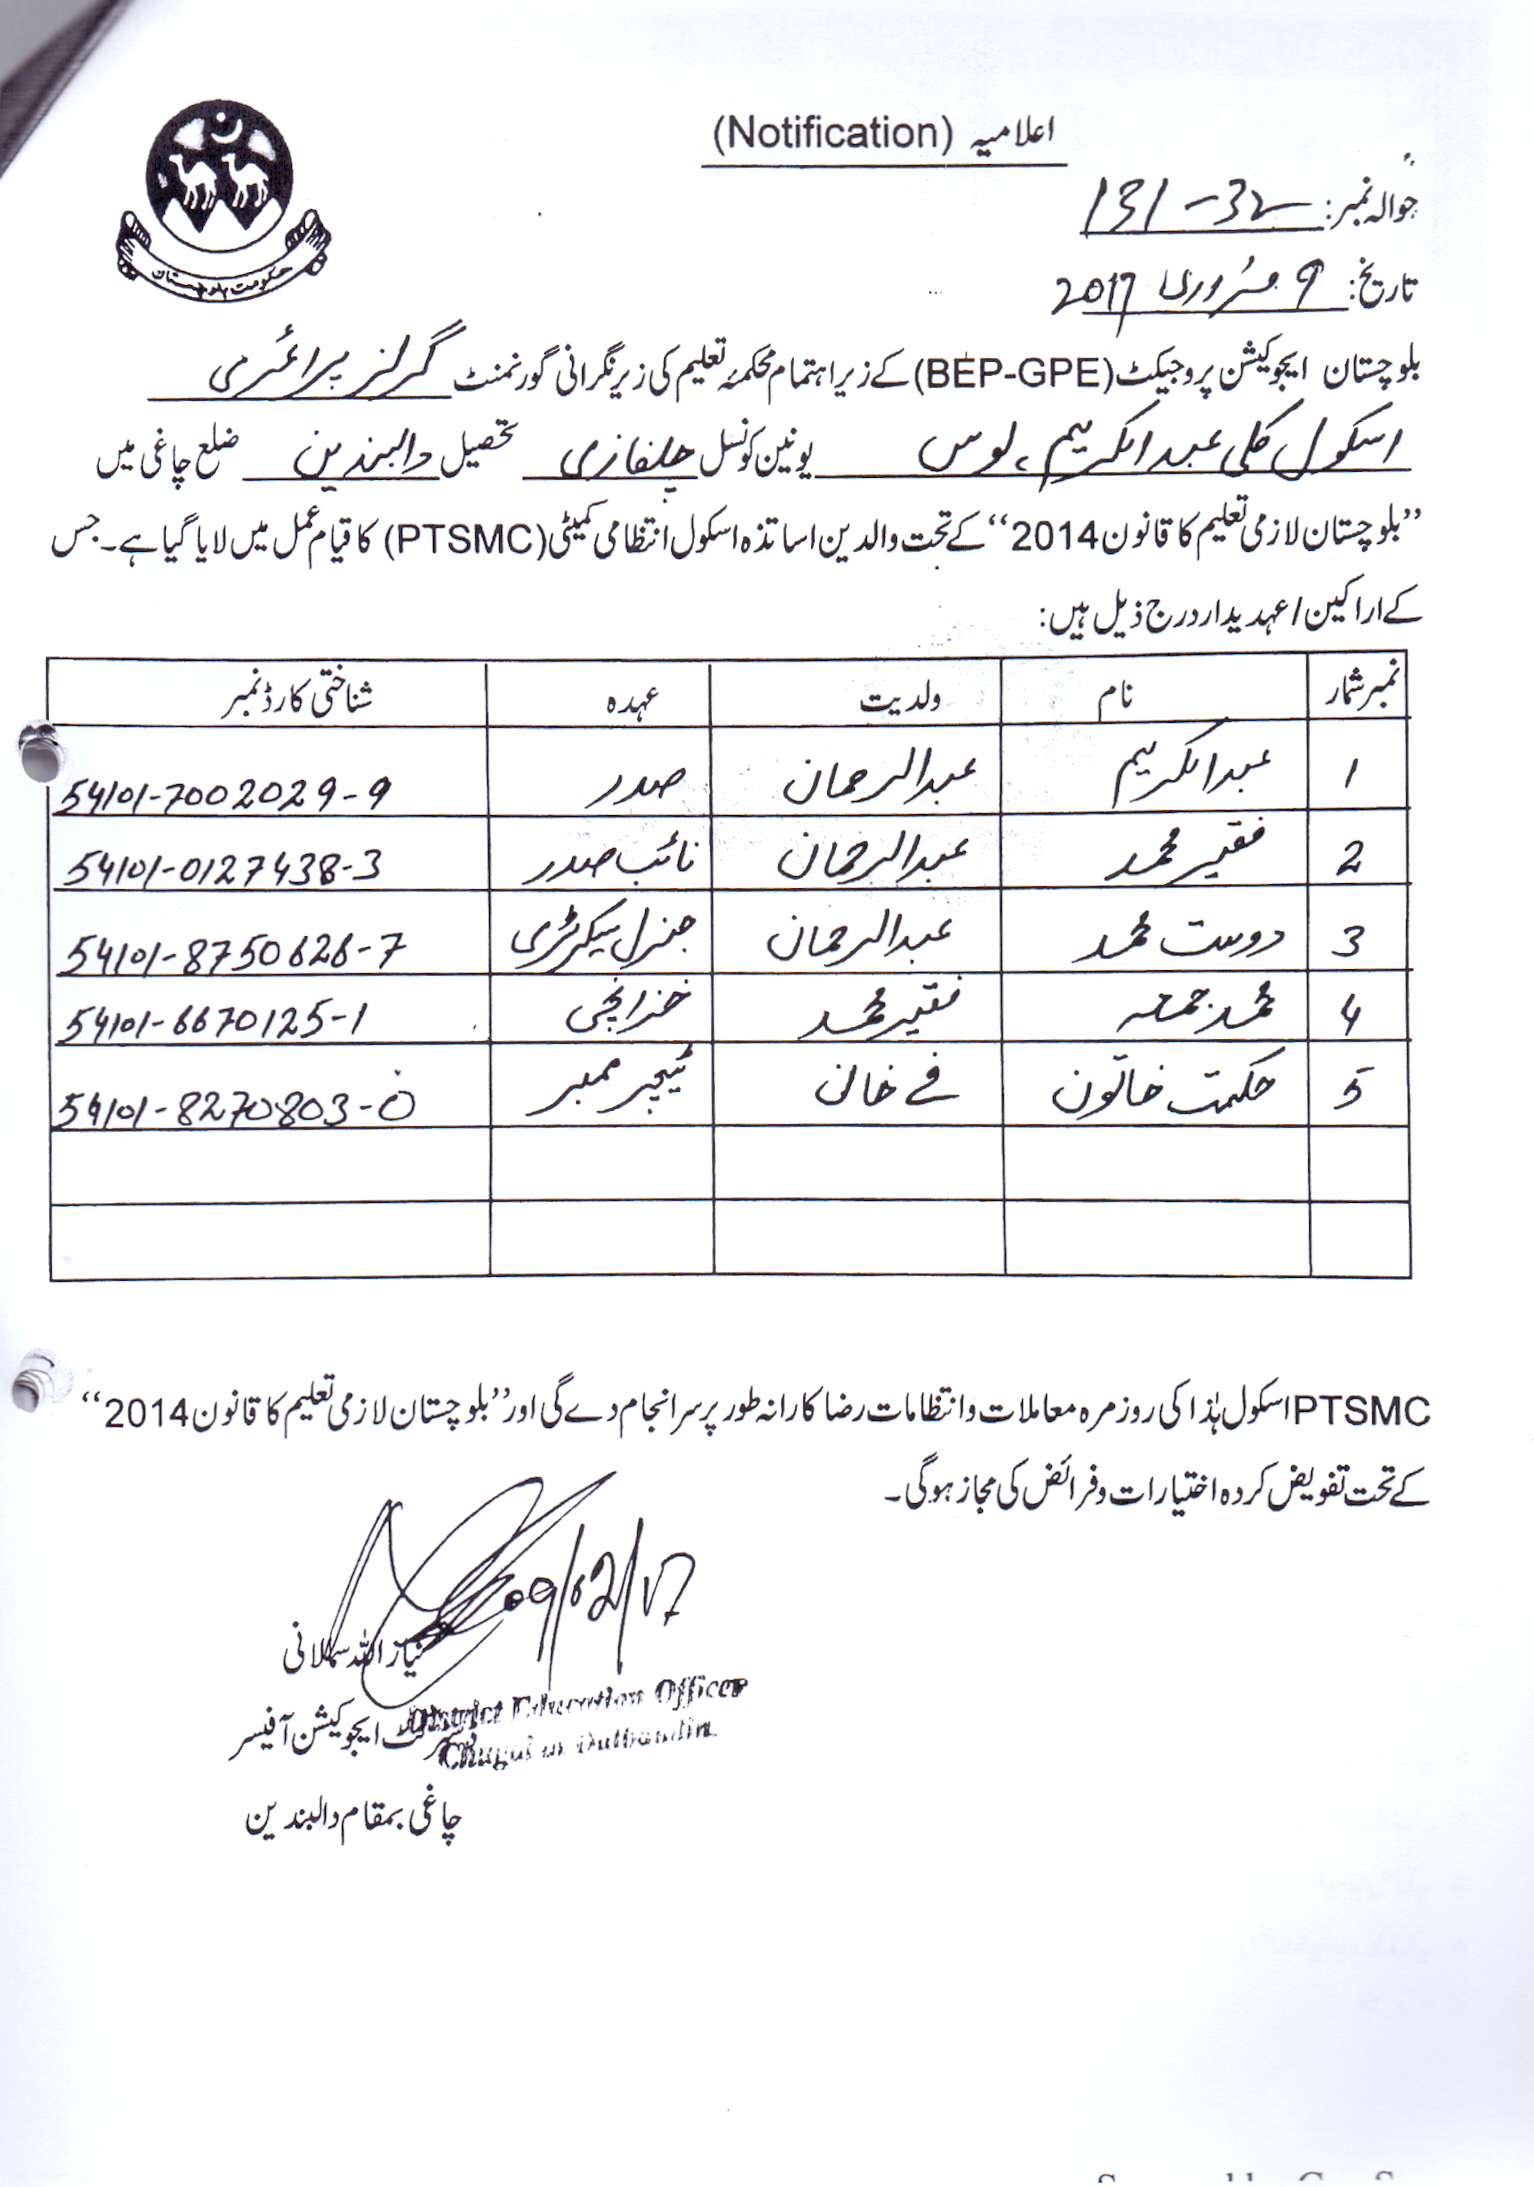 اعلامیہ (Notification)
حوالہ نمبر: 131-32
تاریخ: 9 فروری 2017
حکومت بلوچستان
بلوچستان ایجوکیشن پروجیکٹ (BEP-GPE) کے زیر اہتمام محکمہ تعلیم کی زیر نگرانی گورنمنٹ گرلز پرائمری
اسکول کلی عبدالکریم، لوس یونین کونسل تحصیل دالبندین ضلع چاغی میں
”بلوچستان لازمی تعلیم کا قانون 2014“ کے تحت والدین اساتذہ اسکول انتظامی کمیٹی (PTSMC) کا قیام عمل میں لایا گیا ہے۔ جس
کے اراکین / عہدیدار درج ذیل ہیں:
نمبر شمار نام ولدیت عہدہ شناختی کارڈ نمبر
1 عبدالکریم عبدالرحمان صدر 54101-7002029-9
2 فقیر محمد عبدالرحمان نائب صدر 54101-0127438-3
3 دوست محمد عبدالرحمان جنرل سیکرٹری 54101-8750626-7
4 محمد جمعہ فقیر محمد خزانچی 54101-6670125-1
5 حکمت خاتون خان ٹیچر ممبر 54101-8270803-0
PTSMC اسکول ہٰذا کی روزمرہ معاملات و انتظامات رضا کارانہ طور پر سرانجام دے گی اور ”بلوچستان لازمی تعلیم کا قانون 2014“
کے تحت تفویض کردہ اختیارات و فرائض کی مجاز ہوگی۔
09/02/17
نیاز اللہ سمالانی
District Education Officer
ڈسٹرکٹ ایجوکیشن آفیسر
چاغی بمقام دالبندین